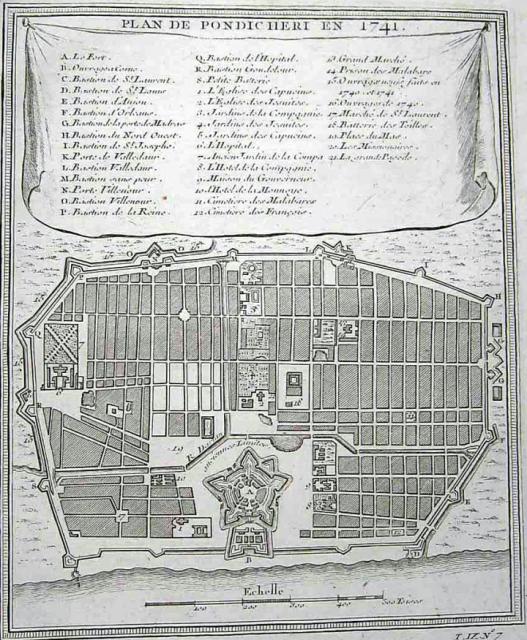 PLAN DE PONDICHERI EN 1741.
A. Le Fort.
B. Ouvrage a Corne.
C. Bastion de St. Laurent.
D. Bastion de St. Louis
E. Bastion d'Anjou.
F. Bastion d'Orleans.
G. Bastion de la porte de Madras
H. Bastion du Nord Ouest.
I. Bastion de St. Joseph.
K. Porte de Valledaur.
L. Bastion Valledaur.
M. Bastion sans peur.
N. Porte Villenour.
O. Bastion Villenour.
P. Bastion de la Reine.
Q. Bastion de l'Hopital.
R. Bastion Goudelour.
S. Petite Batterie
1. L'Eglise des Capucins.
2. L'Eglise des Jesuites.
3. Jardins de la Compagnie.
4. Jardins des Jesuites.
5. Jardins des Capucins.
6. L'Hopital.
7. Ancien Jardin de la Compa
8. L'Hotel de la Compagnie.
9. Maison du Gouverneur.
10. l'Hotel de la Monnoye.
11. Cimetiere des Malabares
12. Cimetiere des François.
13. Grand Marché.
14. Prison des Malabars
15. Ouvrages neufs faits en
1740. et 1741
16. Ouvrages de 1740.
17. Marché de St. Laurent.
18. Batterie des
19. Place du Mas.
20. Les Missionaires.
21. La grande Pagode.
anciennes Limites
A
B
D
H
I
Q
19
Echelle
100 200 300 400 500 Toises
T. IX. N.° 7